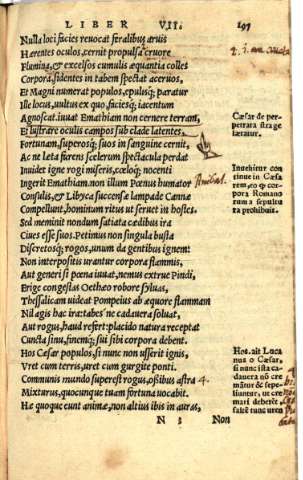 LIBER VII. 197
Nulla loci facies reuocat feralibus aruis
Hærentes oculos, cernit propulsa cruore
Flumina, & excelsos cumulis æquantia colles
Corpora, sidentes in tabem spectat aceruos,
Et Magni numerat populos, epulisq; paratur
Ille locus, uultus ex quo, faciesq; iacentum
Agnoscat. iuuat Emathiam non cernere terram,
Et lustrare oculis campos sub clade latentes.
Fortunam, superosq; suos in sanguine cernit.
Ac ne læta furens scelerum spectacula perdat
Inuidet igne rogi miseris, cæloq; nocenti
Ingerit Emathiam. non illum Pœnus humator
Consulis, & Libyca succensæ lampade Cannæ
Compellunt, hominum ritus ut seruet in hostes.
Sed meminit nondum satiata cædibus ira
Ciues esse suos. Petimus non singula busta
Discretosq; rogos, unum da gentibus ignem:
Non interpositis urantur corpora flammis,
Aut generi si pœna iuuat, nemus extrue Pindi,
Erige congestas Oethæo robore syluas,
Thessalicam uideat Pompeius ab æquore flammam
Nil agis hac ira: tabes'ne cadauera soluat,
Aut rogus, haud refert: placido natura receptat
Cuncta sinu, finemq; sui sibi corpora debent.
Hos Cæsar populos, si nunc non usserit ignis,
Vret cum terris, uret cum gurgite ponti.
Communis mundo superest rogus, ossibus astra
Mixturus, quocunque tuam fortuna uocabit
Hæ quoque eunt animæ, non altius ibis in auras,
N 5 Non
Cæsar de per-
petrata strage
lætatur.
Inuehitur con
tinue in Cæsa
rem, eo q; cor
pora Romano
rum à sepultu
ra prohibuit.
Hoc ait Luca
nus ô Cæsar,
si nunc ista ca
dauera nõ cre
mãtur & sepe-
liuntur, ut cre
mari deberẽt,
saltẽ tunc uren